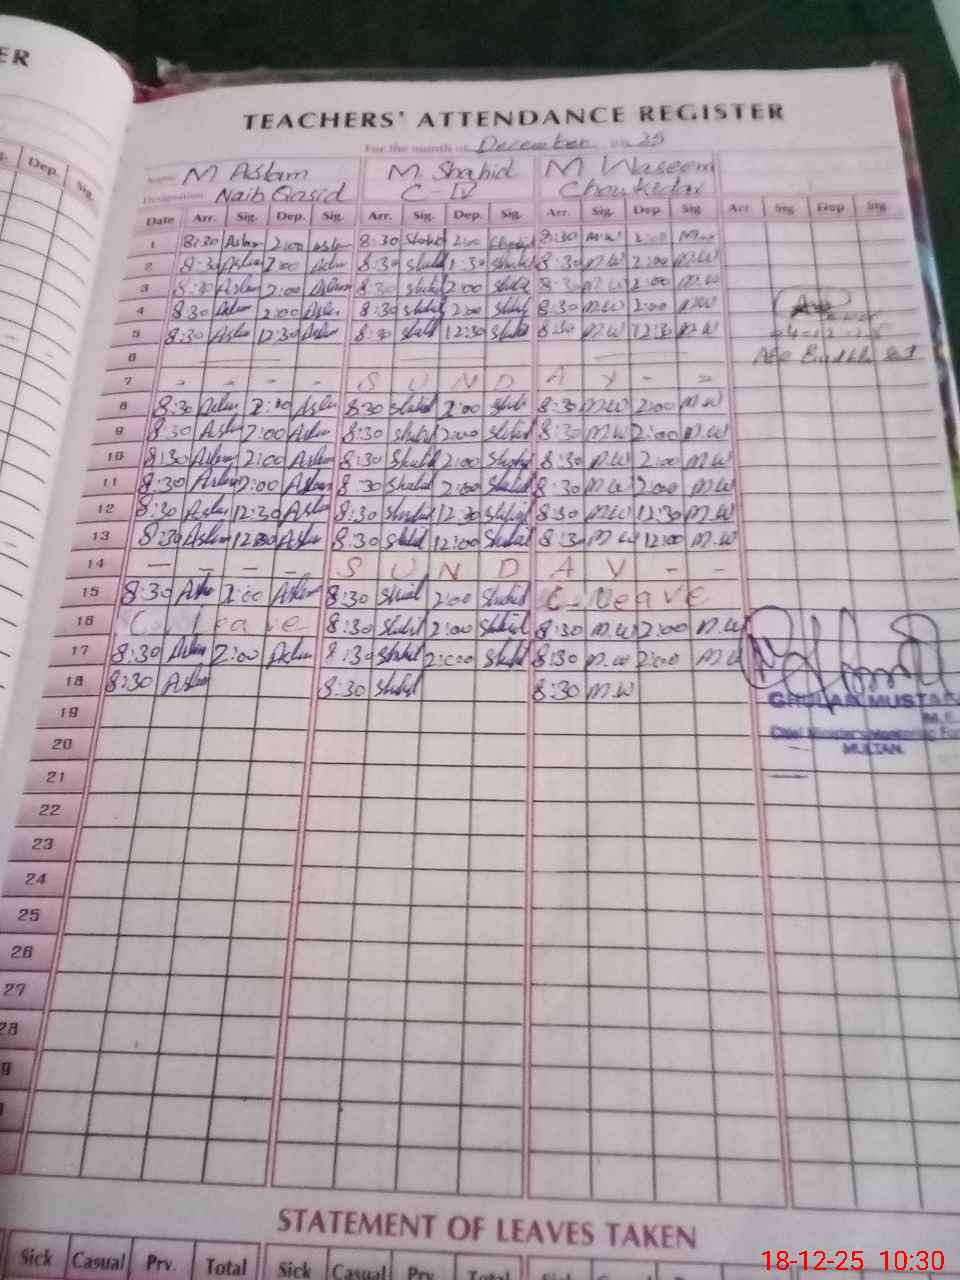 ER
Dep. Sig.
TEACHERS' ATTENDANCE REGISTER
For the month of December 25
Name M Aslam M. Shahid M Waseem
Designation Naib Qasid C-IV Choukedar
Date Arr. Sig. Dep. Sig. Arr. Sig. Dep. Sig. Arr. Sig. Dep. Sig. Arr. Sig. Dep. Sig.
1 8:30 Aslam 2:00 Aslam 8:30 Shahid 2:00 Shahid 8:30 M.W 2:00 M.W
2 8:30 Aslam 2:00 Aslam 8:30 Shahid 1:30 Shahid 8:30 M.W 2:00 M.W
3 8:30 Aslam 2:00 Aslam 8:30 Shahid 2:00 Shahid 8:30 M.W 2:00 M.W
4 8:30 Aslam 2:00 Aslam 8:30 Shahid 2:00 Shahid 8:30 M.W 2:00 M.W
5 8:30 Aslam 12:30 Aslam 8:30 Shahid 12:30 Shahid 8:30 M.W 12:30 M.W
6
7 - - - - S U N D A Y - =
8 8:30 Aslam 2:00 Aslam 8:30 Shahid 2:00 Shahid 8:30 M.W 2:00 M.W
9 8:30 Aslam 2:00 Aslam 8:30 Shahid 2:00 Shahid 8:30 M.W 2:00 M.W
10 8:30 Aslam 2:00 Aslam 8:30 Shahid 2:00 Shahid 8:30 M.W 2:00 M.W
11 8:30 Aslam 2:00 Aslam 8:30 Shahid 2:00 Shahid 8:30 M.W 2:00 M.W
12 8:30 Aslam 12:30 Aslam 8:30 Shahid 12:30 Shahid 8:30 M.W 12:30 M.W
13 8:30 Aslam 12:30 Aslam 8:30 Shahid 12:00 Shahid 8:30 M.W 12:00 M.W
14 - - - - S U N D A Y - -
15 8:30 Aslam 2:00 Aslam 8:30 Shahid 2:00 Shahid C. Leave
16 C. Leave 8:30 Shahid 2:00 Shahid 8:30 M.W 2:00 M.W
17 8:30 Aslam 2:00 Aslam 8:30 Shahid 2:00 Shahid 8:30 M.W 2:00 M.W
18 8:30 Aslam 8:30 Shahid 8:30 M.W
GHULAM MUSTAFA
19
20
MULTAN.
21
22
23
24
25
26
27
28
STATEMENT OF LEAVES TAKEN
Sick Casual Prv. Total Sick Casual Prv. Total Sick Casual
18-12-25 10:30